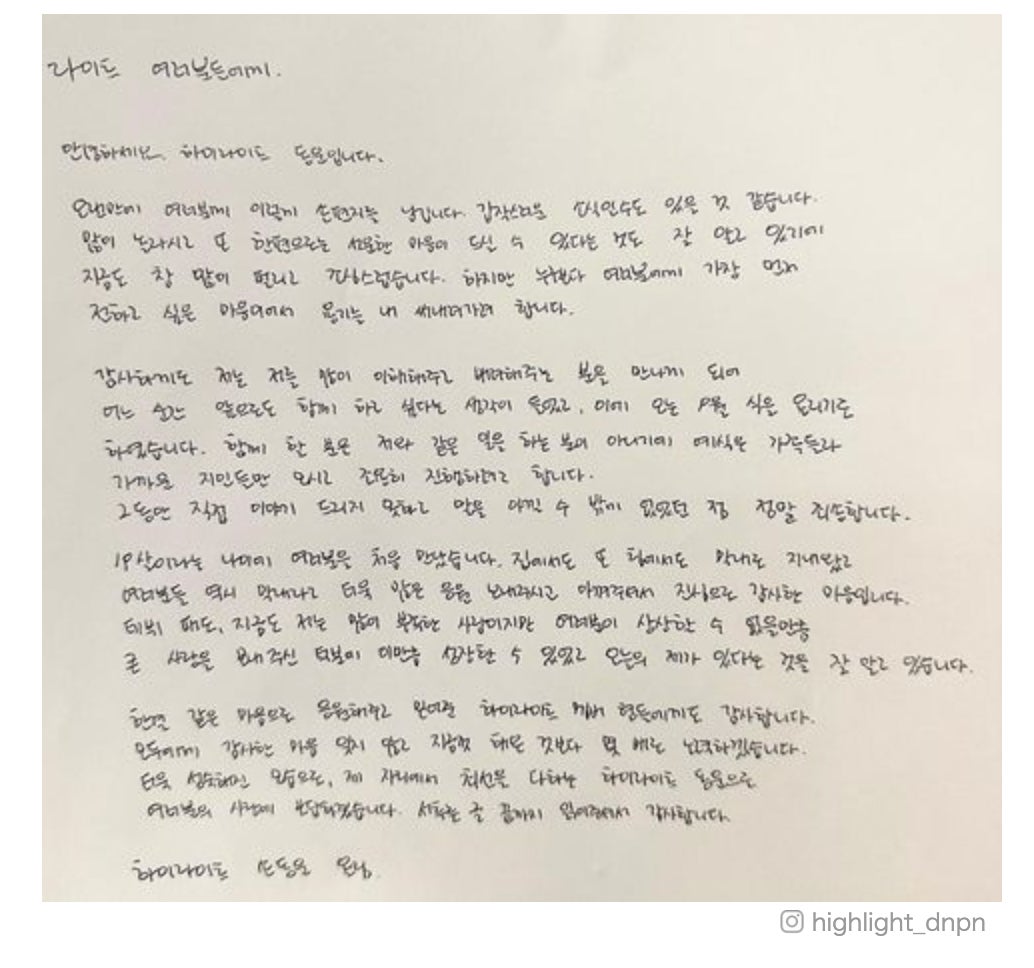 라이트 여러분들에게.
안녕하세요. 하이라이트 동운입니다.
오랜만에 여러분께 이렇게 손편지를 남깁니다. 갑작스러운 소식일수도 있을 것 같습니다.
많이 놀라시고 또 한편으로는 서운한 마음이 드실 수 있다는 것도 잘 알고 있기에
지금도 참 많이 떨리고 조심스럽습니다. 하지만 누구보다 여러분에게 가장 먼저
전하고 싶은 마음이어서 용기를 내 써내려가려 합니다.
감사하게도 저는 저를 많이 이해해주고 배려해주는 분을 만나게 되어
어느 순간 앞으로도 함께 하고 싶다는 생각이 들었고, 이에 오는 9월 식을 올리기로
하였습니다. 함께 할 분은 저와 같은 일을 하는 분이 아니기에 예식은 가족들과
가까운 지인들만 모시고 조용히 진행하려고 합니다.
그동안 직접 이야기 드리지 못하고 말을 아낄 수 밖에 없었던 점 정말 죄송합니다.
19살이라는 나이에 여러분을 처음 만났습니다. 집에서도 또 팀에서도 막내로 지내왔고
여러분들 역시 막내라고 더욱 많은 응원 보내주시고 아껴주셔서 진심으로 감사한 마음입니다.
데뷔 때도, 지금도 저는 많이 부족한 사람이지만 여러분이 상상할 수 없을만큼
큰 사랑을 보내주신 덕분에 이만큼 성장할 수 있었고 오늘의 제가 있다는 것을 잘 알고 있습니다.
한결 같은 마음으로 응원해주고 믿어준 하이라이트 멤버 형들에게도 감사합니다.
모두에게 감사한 마음 잊지 않고 지금껏 해온 것보다 몇 배로 노력하겠습니다.
더욱 성숙해진 모습으로, 제 자리에서 최선을 다하는 하이라이트 동운으로
여러분의 사랑에 보답하겠습니다. 서툰 글 끝까지 읽어주셔서 감사합니다.
하이라이트 손동운 올림.
highlight_dnpn